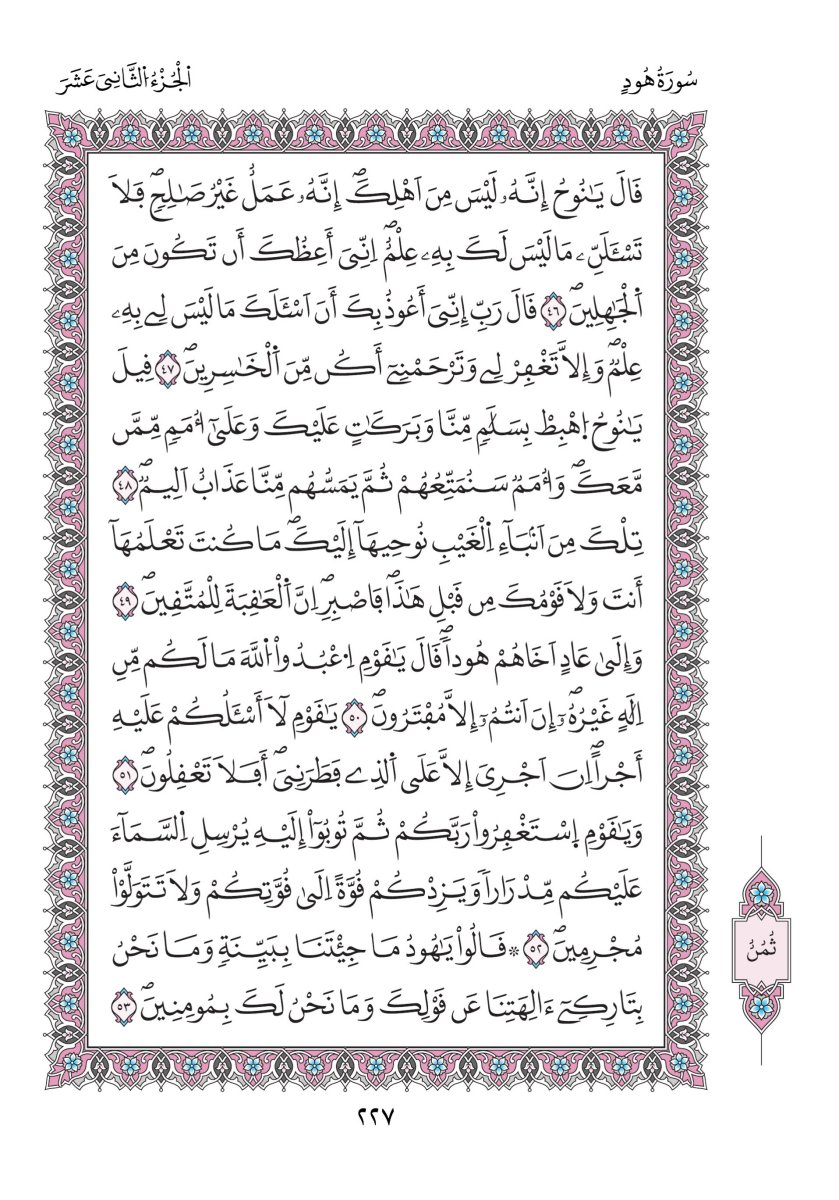 سُورَةُ هُودٍ
اَ۬لْجُزْءُ اُ۬لثَّانِيَ عَشَرَ
قَالَ يَٰنُوحُ إِنَّهُۥ لَيْسَ مِنَ اَهْلِكَۖ إِنَّهُۥ عَمَلٌ غَيْرُ صَٰلِحٖۖ فَلَا
تَسْـَٔلَنِّۦ مَا لَيْسَ لَكَ بِهِۦ عِلْمٌۖ اِنِّيَ أَعِظُكَ أَن تَكُونَ مِنَ
اَ۬لْجَٰهِلِينَۖ ٤٦ قَالَ رَبِّ إِنِّيَ أَعُوذُ بِكَ أَنَ اَسْـَٔلَكَ مَا لَيْسَ لِے بِهِۦ
عِلْمٞۖ وَإِلَّا تَغْفِرْ لِے وَتَرْحَمْنِےٓ أَكُن مِّنَ اَ۬لْخَٰسِرِينَۖ ٤٧ قِيلَ
يَٰنُوحُ اُ۪هْبِطْ بِسَلَٰمٖ مِّنَّا وَبَرَكَٰتٍ عَلَيْكَ وَعَلَىٰٓ أُمَمٖ مِّمَّن
مَّعَكَۖ وَأُمَمٞ سَنُمَتِّعُهُمْ ثُمَّ يَمَسُّهُم مِّنَّا عَذَابٌ اَلِيمٞۖ ٤٨
تِلْكَ مِنَ اَنۢبَآءِ اِ۬لْغَيْبِ نُوحِيهَآ إِلَيْكَۖ مَا كُنتَ تَعْلَمُهَآ
أَنتَ وَلَا قَوْمُكَ مِن قَبْلِ هَٰذَاۖ فَاصْبِرِۖ اِنَّ اَ۬لْعَٰقِبَةَ لِلْمُتَّقِينَۖ ٤٩
وَإِلَىٰ عَادٍ اَخَاهُمْ هُوداٗۖ قَالَ يَٰقَوْمِ اِ۟عْبُدُواْ اُ۬للَّهَ مَا لَكُم مِّنِ
اِلَٰهٍ غَيْرُهُۥٓۖ إِنَ اَنتُمُۥٓ إِلَّا مُفْتَرُونَۖ ٥٠ يَٰقَوْمِ لَآ أَسْـَٔلُكُمْ عَلَيْهِ
أَجْراًۖ اِنَ اَجْرِيَ إِلَّا عَلَى اَ۬لذِے فَطَرَنِيَۖ أَفَلَا تَعْقِلُونَۖ ٥١
وَيَٰقَوْمِ اِ۪سْتَغْفِرُواْ رَبَّكُمْ ثُمَّ تُوبُوٓاْ إِلَيْهِ يُرْسِلِ اِ۬لسَّمَآءَ
عَلَيْكُم مِّدْرَاراٗ وَيَزِدْكُمْ قُوَّةً اِلَىٰ قُوَّتِكُمْ وَلَا تَتَوَلَّوْاْ
مُجْرِمِينَۖ ٥٢ * قَالُواْ يَٰهُودُ مَا جِئْتَنَا بِبَيِّنَةٖ وَمَا نَحْنُ
بِتَارِكِےٓ ءَالِهَتِنَا عَن قَوْلِكَ وَمَا نَحْنُ لَكَ بِمُومِنِينَۖ ٥٣
ثُمُنٌ
٢٢٧